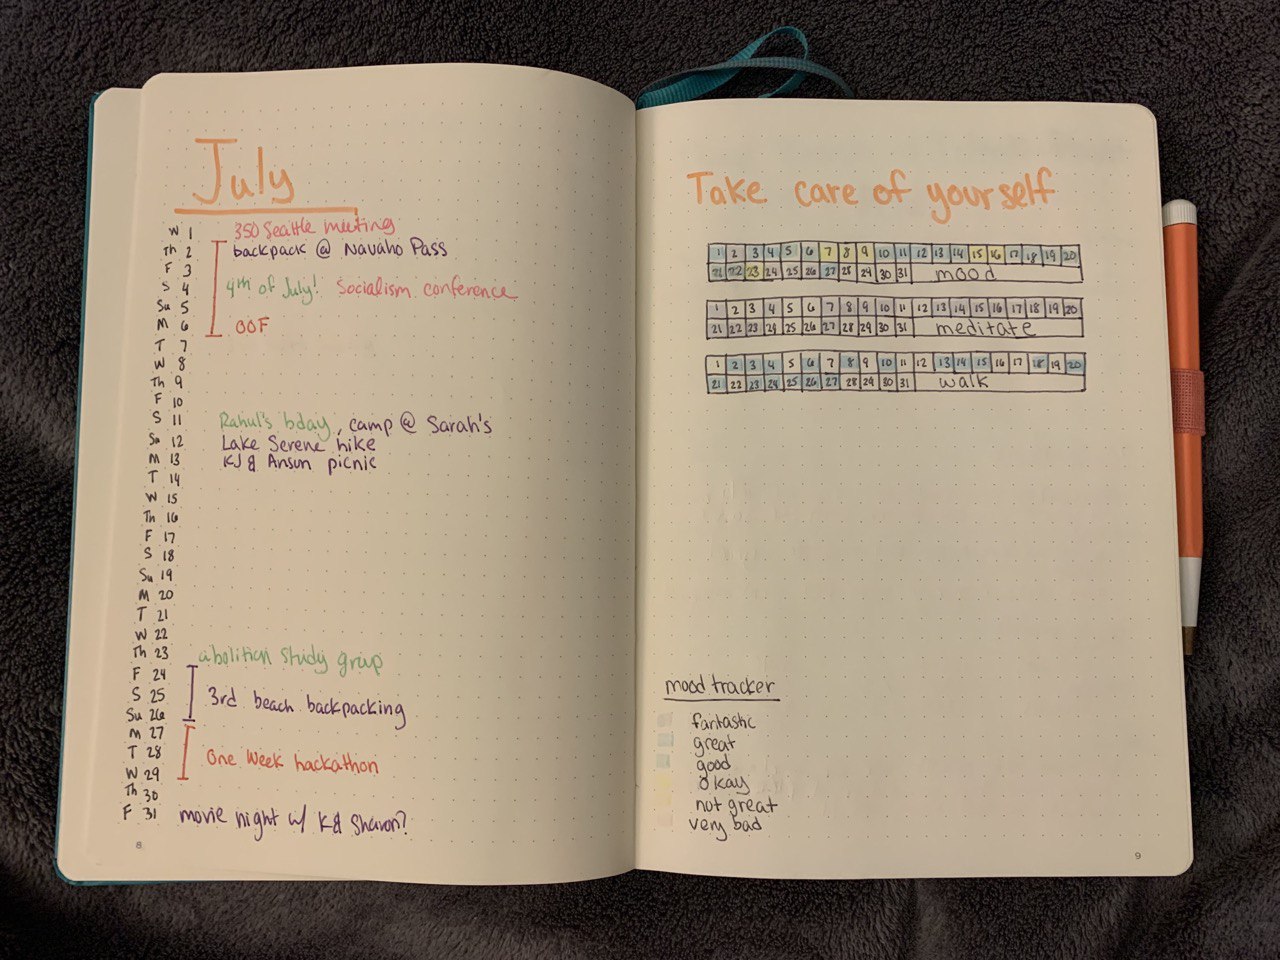 July
W 1 350 Seattle meeting
Th 2 backpack @ Navaho Pass
F 3
S 4 4th of July! Socialism conference
Su 5
M 6 OOF
T 7
W 8
Th 9
F 10
S 11 Rahul's bday, camp @ Sarah's
Su 12 Lake Serene hike
M 13 KJ & Ansun picnic
T 14
W 15
Th 16
F 17
S 18
Su 19
M 20
T 21
W 22
Th 23 abolition study group
F 24
S 25 3rd beach backpacking
Su 26
M 27
T 28 One Week hackathon
W 29
Th 30
F 31 movie night w/ K& Sharon?
8
Take care of yourself
1 2 3 4 5 6 7 8 9 10 11 12 13 14 15 16 17 18 19 20
21 22 23 24 25 26 27 28 29 30 31 mood
1 2 3 4 5 6 7 8 9 10 11 12 13 14 15 16 17 18 19 20
21 22 23 24 25 26 27 28 29 30 31 meditate
1 2 3 4 5 6 7 8 9 10 11 12 13 14 15 16 17 18 19 20
21 22 23 24 25 26 27 28 29 30 31 walk
mood tracker
fantastic
great
good
okay
not great
very bad
9